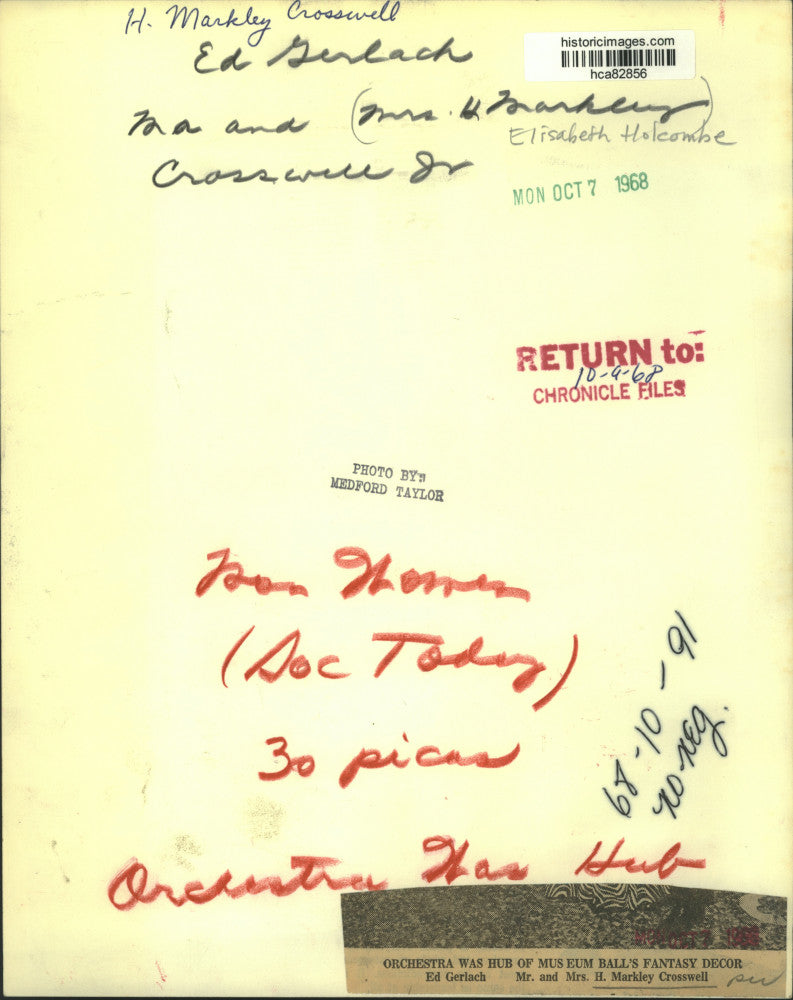 H. Markley Crosswell
Ed Gerlach
historicimages.com
hca82856
Mr and (Mrs. H Markley)
Elisabeth Holcombe
Crosswell Jr
MON OCT 7 1968
RETURN to:
10-9-68
CHRONICLE FILES
PHOTO BY:
MEDFORD TAYLOR
Mon Women
(Soc Today)
30 picas
68-10-91
no neg.
Orchestra Was Hub
ORCHESTRA WAS HUB OF MUSEUM BALL'S FANTASY DECOR
Ed Gerlach Mr. and Mrs. H. Markley Crosswell